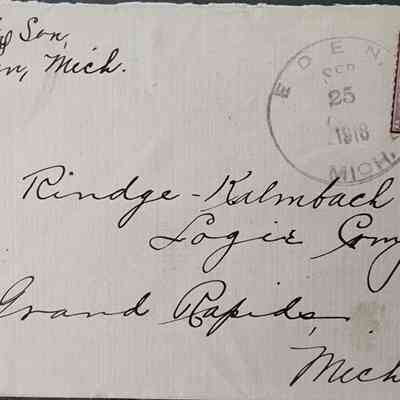 & Son,
n, Mich.
EDEN, MICH.
SEP
25
1918
Rindge-Kalmbach
Logie Com
Grand Rapids,
Mich